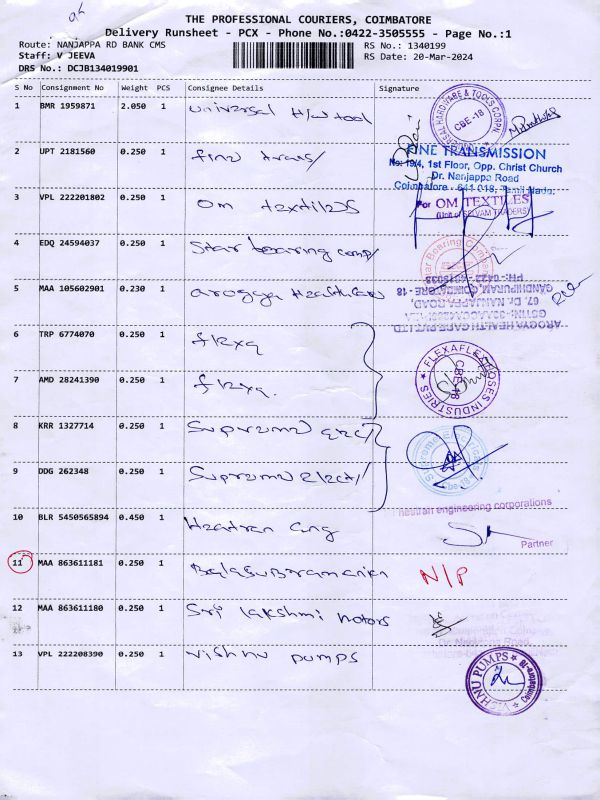 ok
THE PROFESSIONAL COURIERS, COIMBATORE
Delivery Runsheet - PCX - Phone No.:0422-3505555 - Page No.:1
Route: NANJAPPA RD BANK CMS
RS No.: 1340199
Staff: V JEEVA
RS Date: 20-Mar-2024
DRS No.: DCJB134019901
S No Consignment No Weight PCS Consignee Details Signature
1 BMR 1959871 2.050 1 Universal H/w tool
CBE-18
2 UPT 2181560 0.250 1 fine trans/
FINE TRANSMISSION
No: 19/4, 1st Floor, Opp. Christ Church
Dr. Nanjappa Road
Coimbatore - 641 018, Tamil Nadu.
3 VPL 222201802 0.250 1 Om textiles
For OM TEXTILES
(Unit of SELVAM TRADERS)
4 EDQ 24594037 0.250 1 Star bearing comp/
5 MAA 105602901 0.230 1 arogya Healthcare
AROGYA HEALTH CARE PVT LTD
67, Dr. NANJAPPA ROAD,
GANDHIPURAM, COIMBATORE - 18
6 TRP 6774070 0.250 1 flexa
7 AMD 28241390 0.250 1 flexa.
FLEXAFLEX HOSES INDUSTRIES
CBE-18
8 KRR 1327714 0.250 1 Supreme elect/
9 DDG 262348 0.250 1 Supreme elect/
10 BLR 5450565894 0.450 1 Heatran eng
heatran engineering corporations
Partner
11 MAA 863611181 0.250 1 Balasubramanian N/P
12 MAA 863611180 0.250 1 Sri lakshmi motors
13 VPL 222208390 0.250 1 vishnu pumps
VISHNU PUMPS
Coimbatore-18